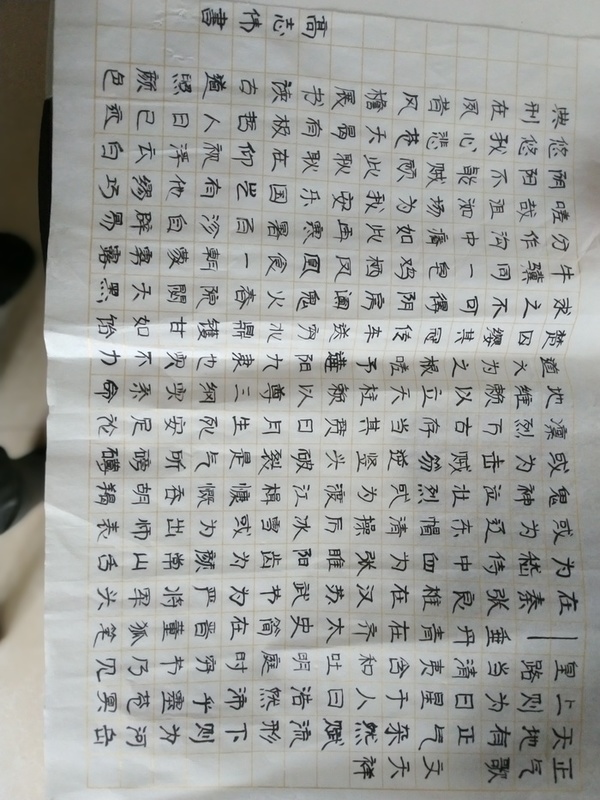 正气歌　文天祥
天地有正气杂然赋流形下则为河岳
上则为日星于人曰浩然沛乎塞苍冥
皇路当清夷含和吐明庭时穷节乃见
一一垂丹青在齐太史简在晋董狐笔
在秦张良椎在汉苏武节为严将军头
为嵇侍中血为张睢阳齿为颜常山舌
或为辽东帽清操厉冰雪或为出师表
鬼神泣壮烈或为渡江楫慷慨吞胡羯
或为击贼笏逆竖头破裂是气所磅礴
凛烈万古存当其贯日月生死安足论
地维赖以立天柱赖以尊三纲实系命
道义为之根嗟予遘阳九隶也实不力
楚囚缨其冠传车送穷北鼎镬甘如饴
求之不可得阴房阗鬼火春院閟天黑
牛骥同一皂鸡栖凤凰食一朝蒙雾露
分作沟中瘠如此再寒暑百沴自辟易
嗟哉沮洳场为我安乐国岂有他缪巧
阴阳不能贼顾此耿耿在仰视浮云白
悠悠我心悲苍天曷有极哲人日已远
典刑在夙昔风檐展书读古道照颜色
高志伟書